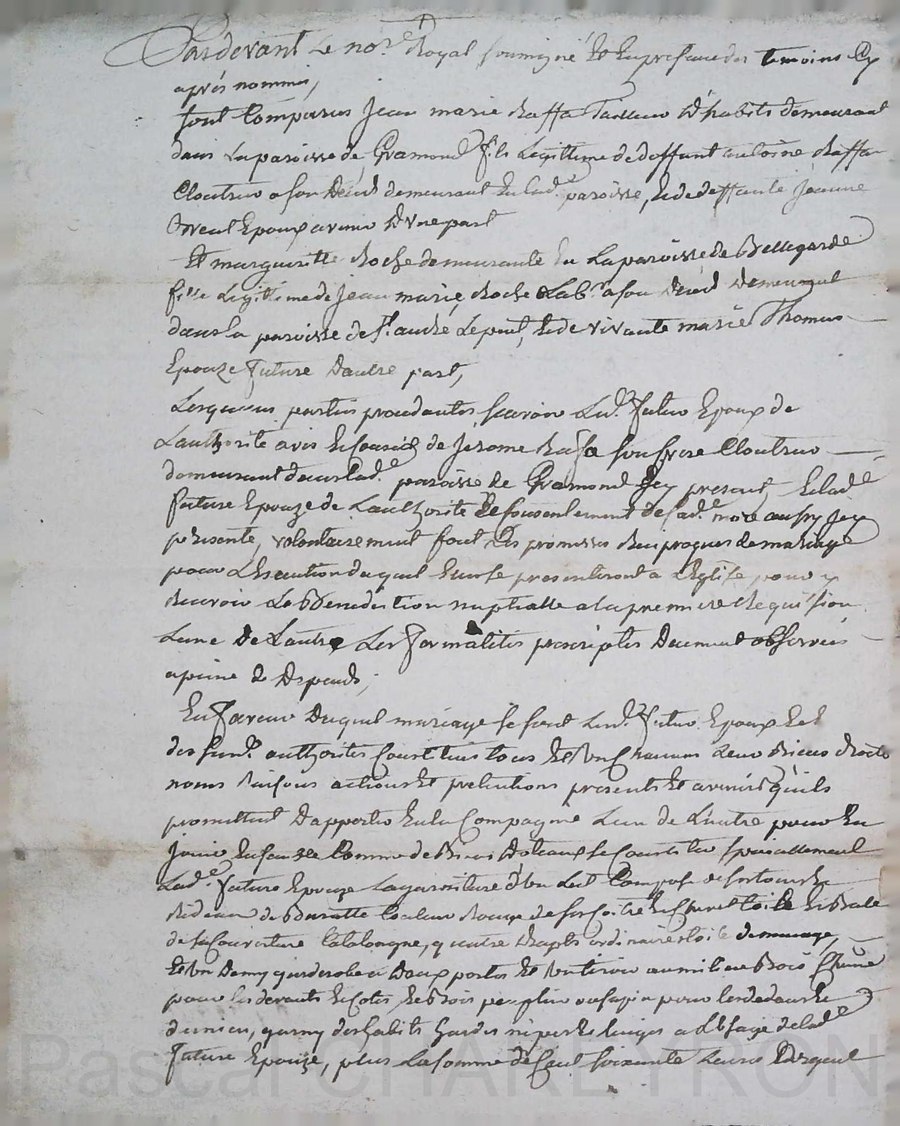 Pardevant Le no.re Royal soussigné Et En presence des temoins Cy
aprés nommés,
sont Comparus Jean marie Raffa Tailleur D'habits demeurant
dans La paroisse de Gramond fils Legittime de deffunt antoine Raffa
Cloutreur a son Deces demeurant En lad.e paroisse, Et de deffunte Jeanne
Epoux avenir D'Une part
Et margueritte Roche demeurante En La paroisse de Bellegarde
fille Legitime de Jean marie Roche Lab.r a son Deces Demeurant
dans la paroisse de S.t andré Le peut, Et de vivante marie Thomas
Epouze future Dautre part,
Lesquelles parties procedantes scavoir Led.t futur Epoux de
L'authorité avis Et conseil de Jerome Raffa son frere Cloutreur
demeurant dans lad.e paroisse de Gramond Icy present, Et lad.e
future Epouze de L'authorité Et Consentement de sad.e mere aussy Icy
présente, volontairement font Les promesses Reciproques de mariage
pour L'Execution duquel Ils se presenteront a L'Eglise pour y
Recevoir La Benediction nuptialle a la premiere Requisition
Lune De Lautre Les formalités prescriptes Deument observées
a peine de Depends;
En faveur Duquel mariage se sont Lesd.ts futurs Epoux Et
des susd. authorités Constitués tous Et Un Chacun Leurs Biens droits
noms Raisons actions Et pretentions presents Et avenirs qu'ils
promettent D'apporter En la Compagnie Lun de Lautre pour En
Jouir Ensemble Comme de Biens Dotaux se Constitue specialement
Lad.e future Epouze La garniture d'Un Lit Composé de
Rideaux de Buratte Couleur Rouge de
de sa Couverture Catalongne, quatre draps ordinaires toile de menage,
Et Un Demy garderobe a Deux portes Et Un tiroir au milieu Bois Chêne
pour les devants Et Cotés, Et Bois peuplier ou sapin pour Les dedans Et
derriere, garny des habits hardes nipes Et Linges a L'Usage de lad.e
future Epouze, plus La somme de Cent soixante Livres Desquel
Pascal CHARETRON